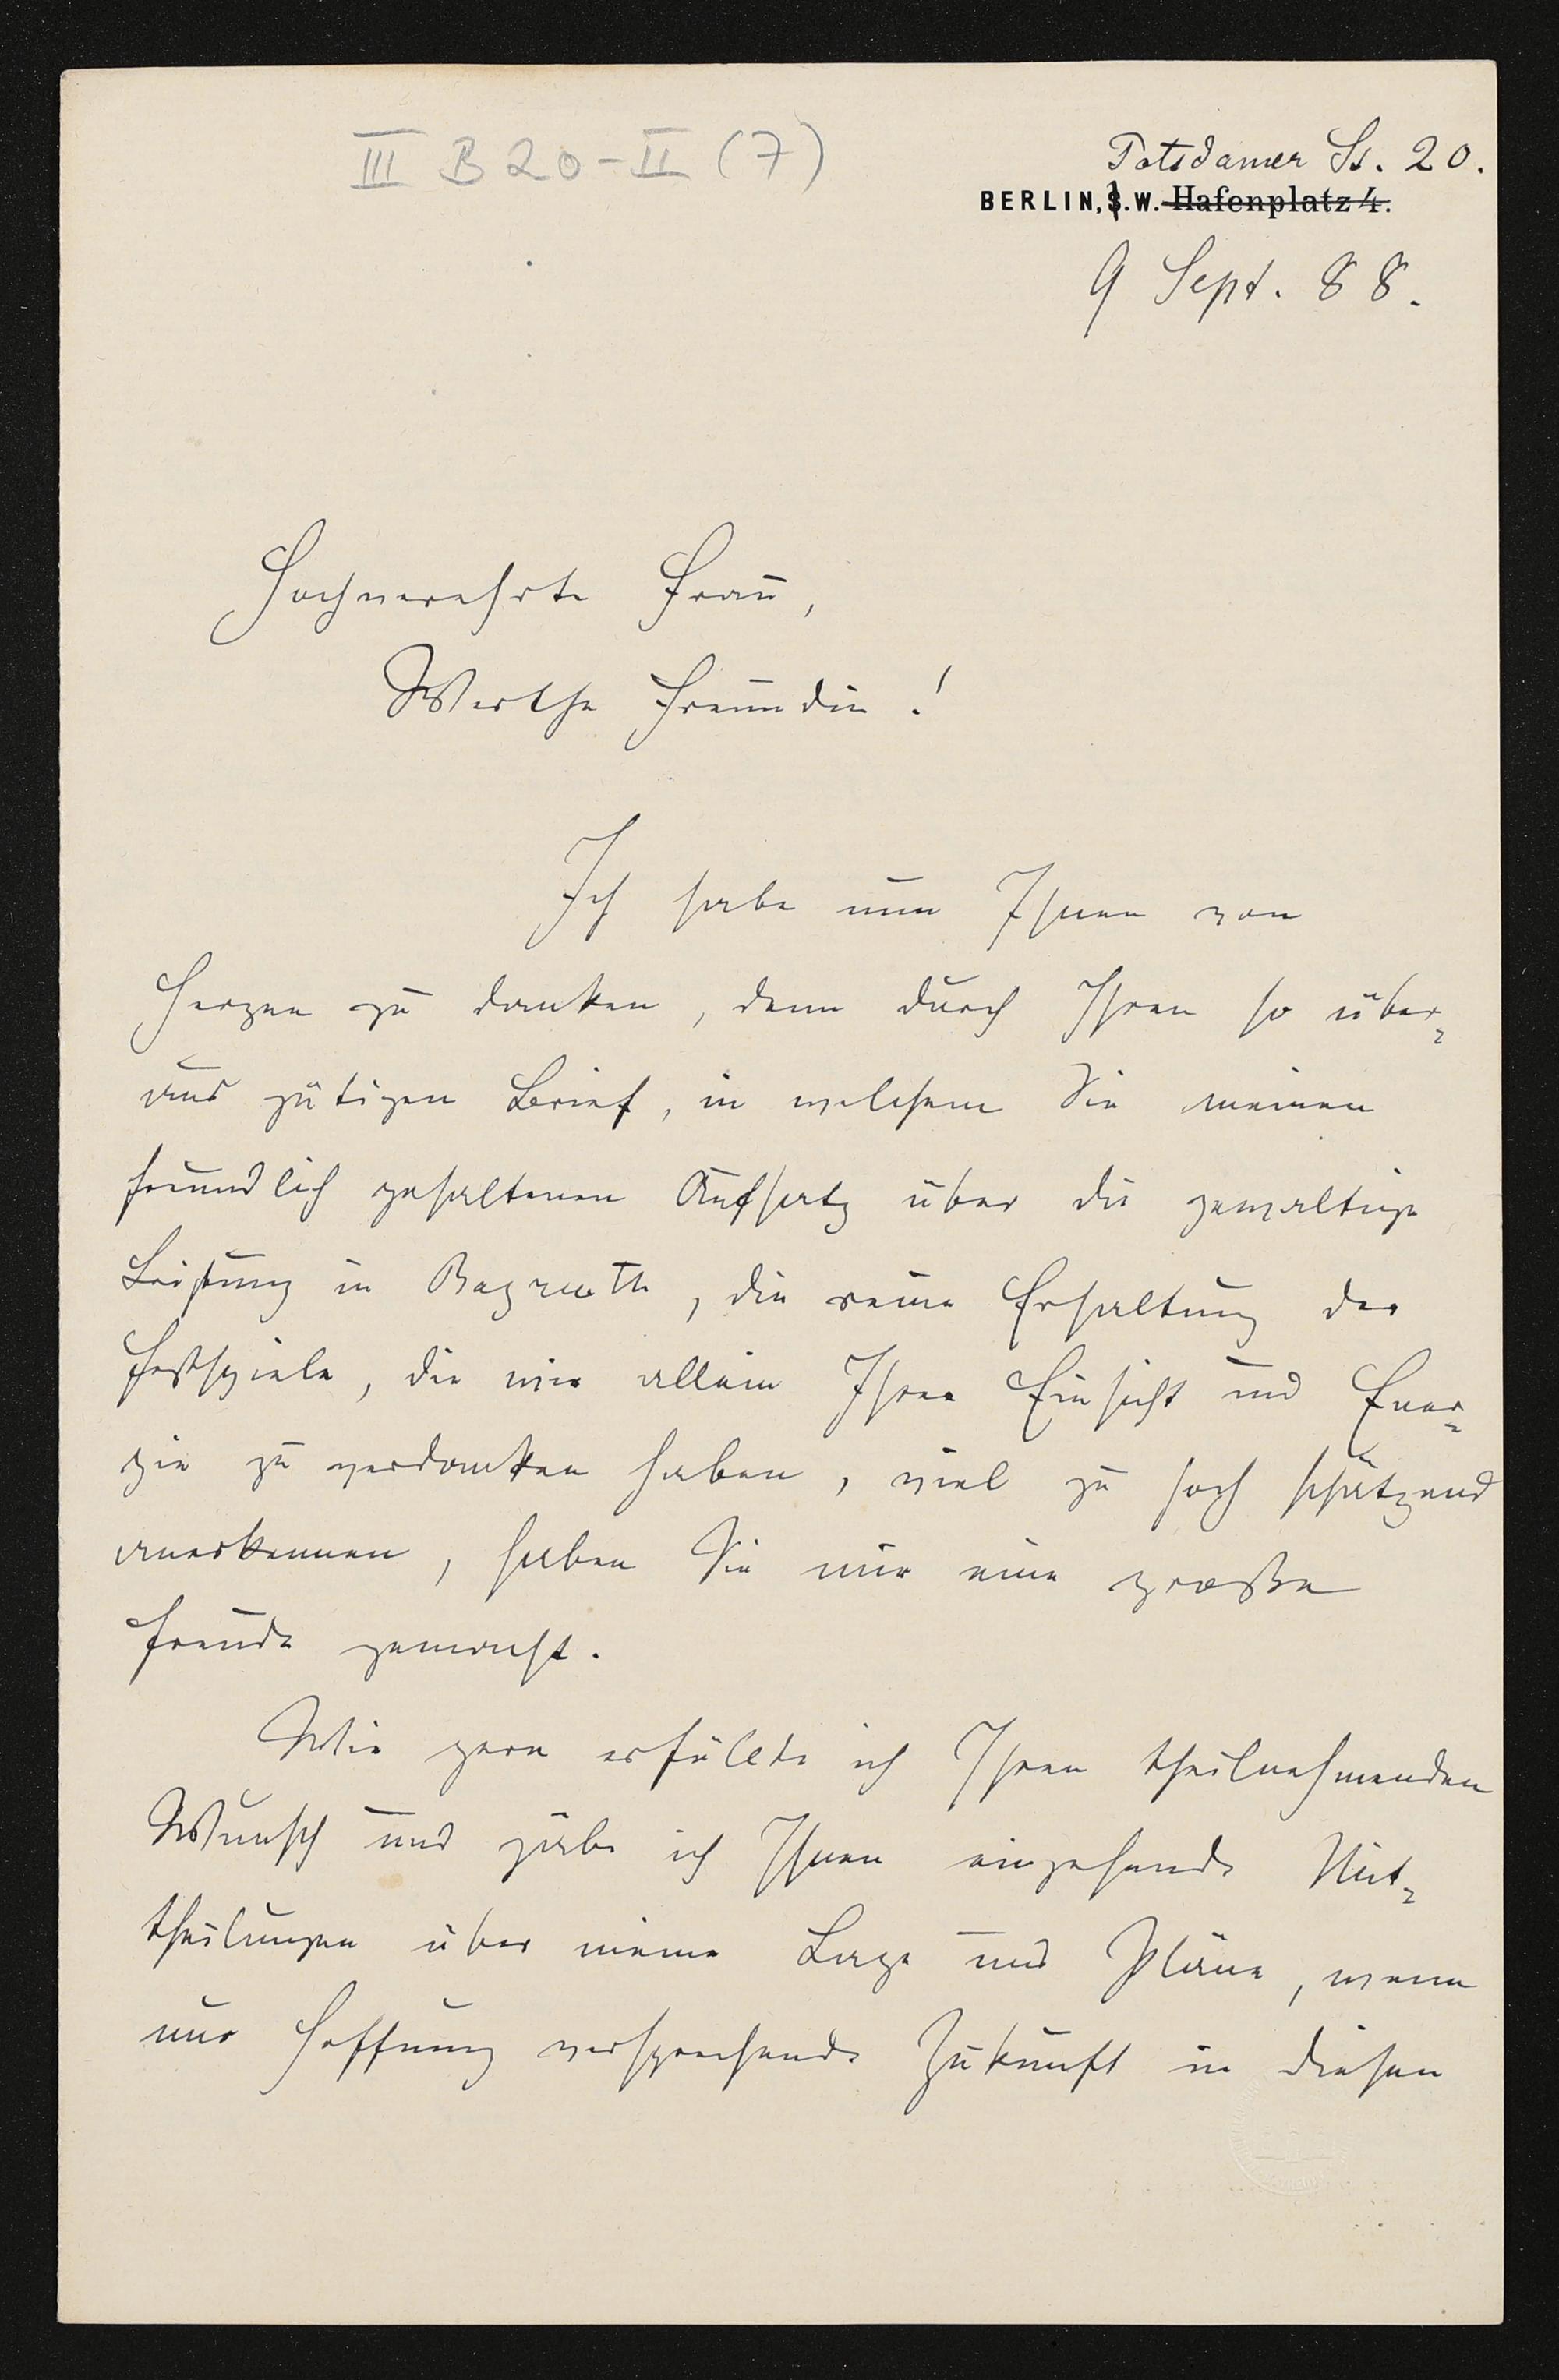 III B 20-II (7)
Potsdamer St. 20.
BERLIN, S.W. Hafenplatz 4.
9 Sept. 88.
Hochverehrte Frau,
Werthe Freundin!
Ich habe nun Ihnen von
Herzen zu danken, denn durch Ihren so über-
aus gütigen Brief, in welchem Sie meinen
freundlich gehaltenen Aufsatz über die gewaltige
Leistung in Bayreuth, die reine Erhaltung der
Festspiele, die wir allein Ihrer Einsicht und Ener-
gie zu verdanken haben, viel zu hoch schätzend
anerkennen, haben Sie mir eine große
Freude gemacht.
Wie gern erfüllte ich Ihren theilnehmenden
Wunsch und gäbe ich Ihnen eingehende Mit-
theilungen über meine Lage und Pläne, wenn
nur Hoffnung versprechende Zukunft in diesen